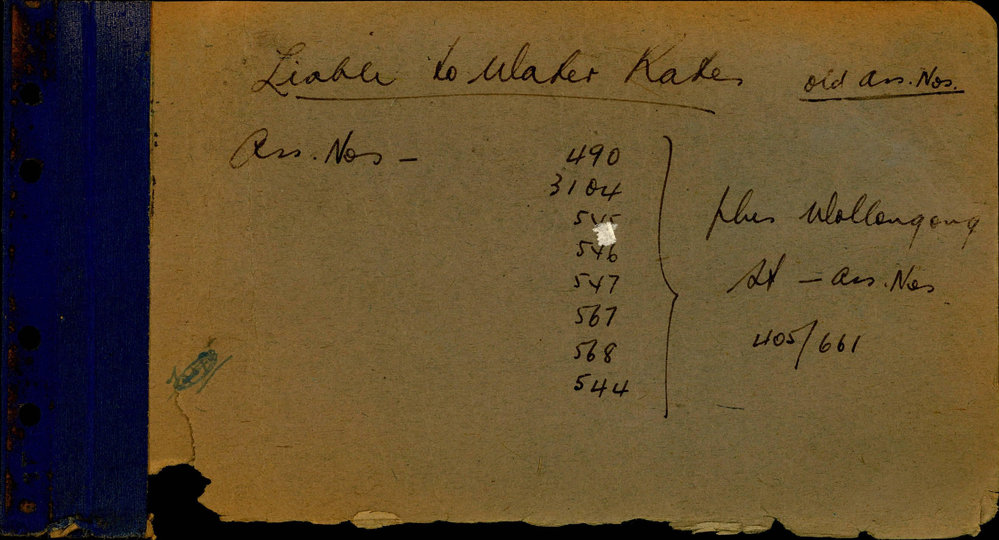 Liable to Water Rates old Ass. Nos.
Ass. Nos -
490
3104
545
546
547
567
568
544
plus Wollongong
St - Ass. Nos
405/661